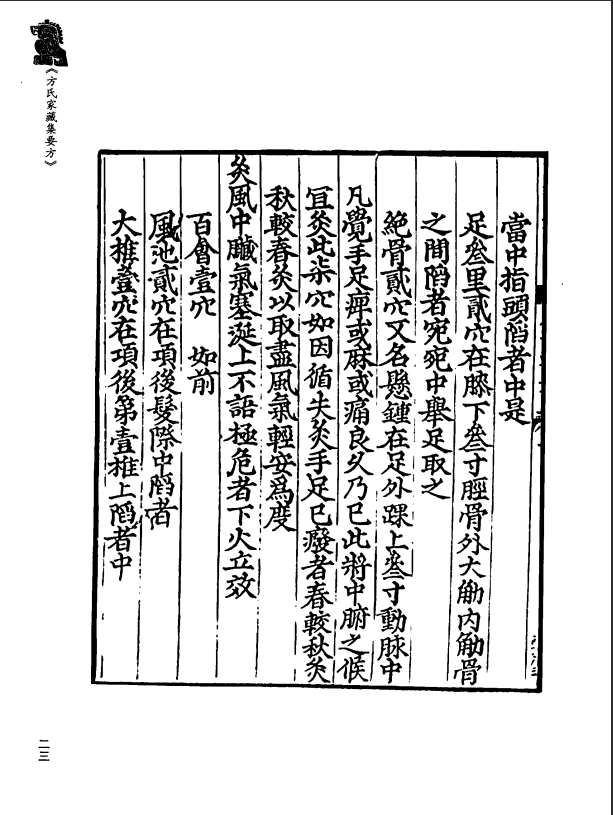 《方氏家藏集要方》
當中指頭陷者中是
足叁里貳穴在膝下叁寸脛骨外大觔内觔骨
之間陷者宛宛中舉足取之
絶骨貳穴又名懸鍾在足外踝上叁寸動脉中
凡覺手足痺或麻或痛良久乃已此將中腑之候
冝灸此柒穴如因循失灸手足已廢者春較秋灸
秋較春灸以取盡風氣輕安爲度
灸風中臟氣塞涎上不語極危者下火立效
百會壹穴 如前
風池貳穴在項後髮際中陷者
大椎壹穴在項後第壹椎上陷者中
二三